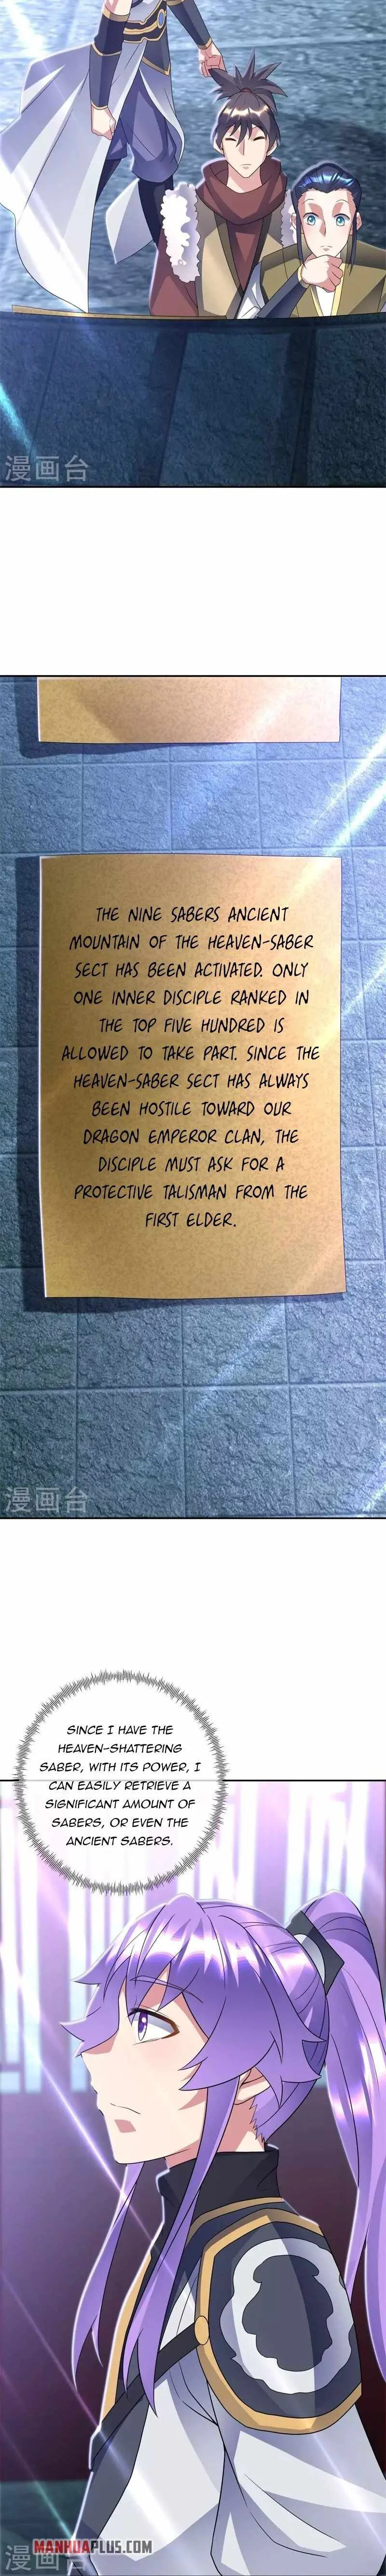 漫画台
THE NINE SABERS ANCIENT
MOUNTAIN OF THE HEAVEN-SABER
SECT HAS BEEN ACTIVATED. ONLY
ONE INNER DISCIPLE RANKED IN
THE TOP FIVE HUNDRED IS
ALLOWED TO TAKE PART. SINCE THE
HEAVEN-SABER SECT HAS ALWAYS
BEEN HOSTILE TOWARD OUR
DRAGON EMPEROR CLAN, THE
DISCIPLE MUST ASK FOR A
PROTECTIVE TALISMAN FROM THE
FIRST ELDER.
漫画台
SINCE I HAVE THE
HEAVEN-SHATTERING
SABER, WITH ITS POWER, I
CAN EASILY RETRIEVE A
SIGNIFICANT AMOUNT OF
SABERS, OR EVEN THE
ANCIENT SABERS.
MANHUAPLUS.COM
漫画台